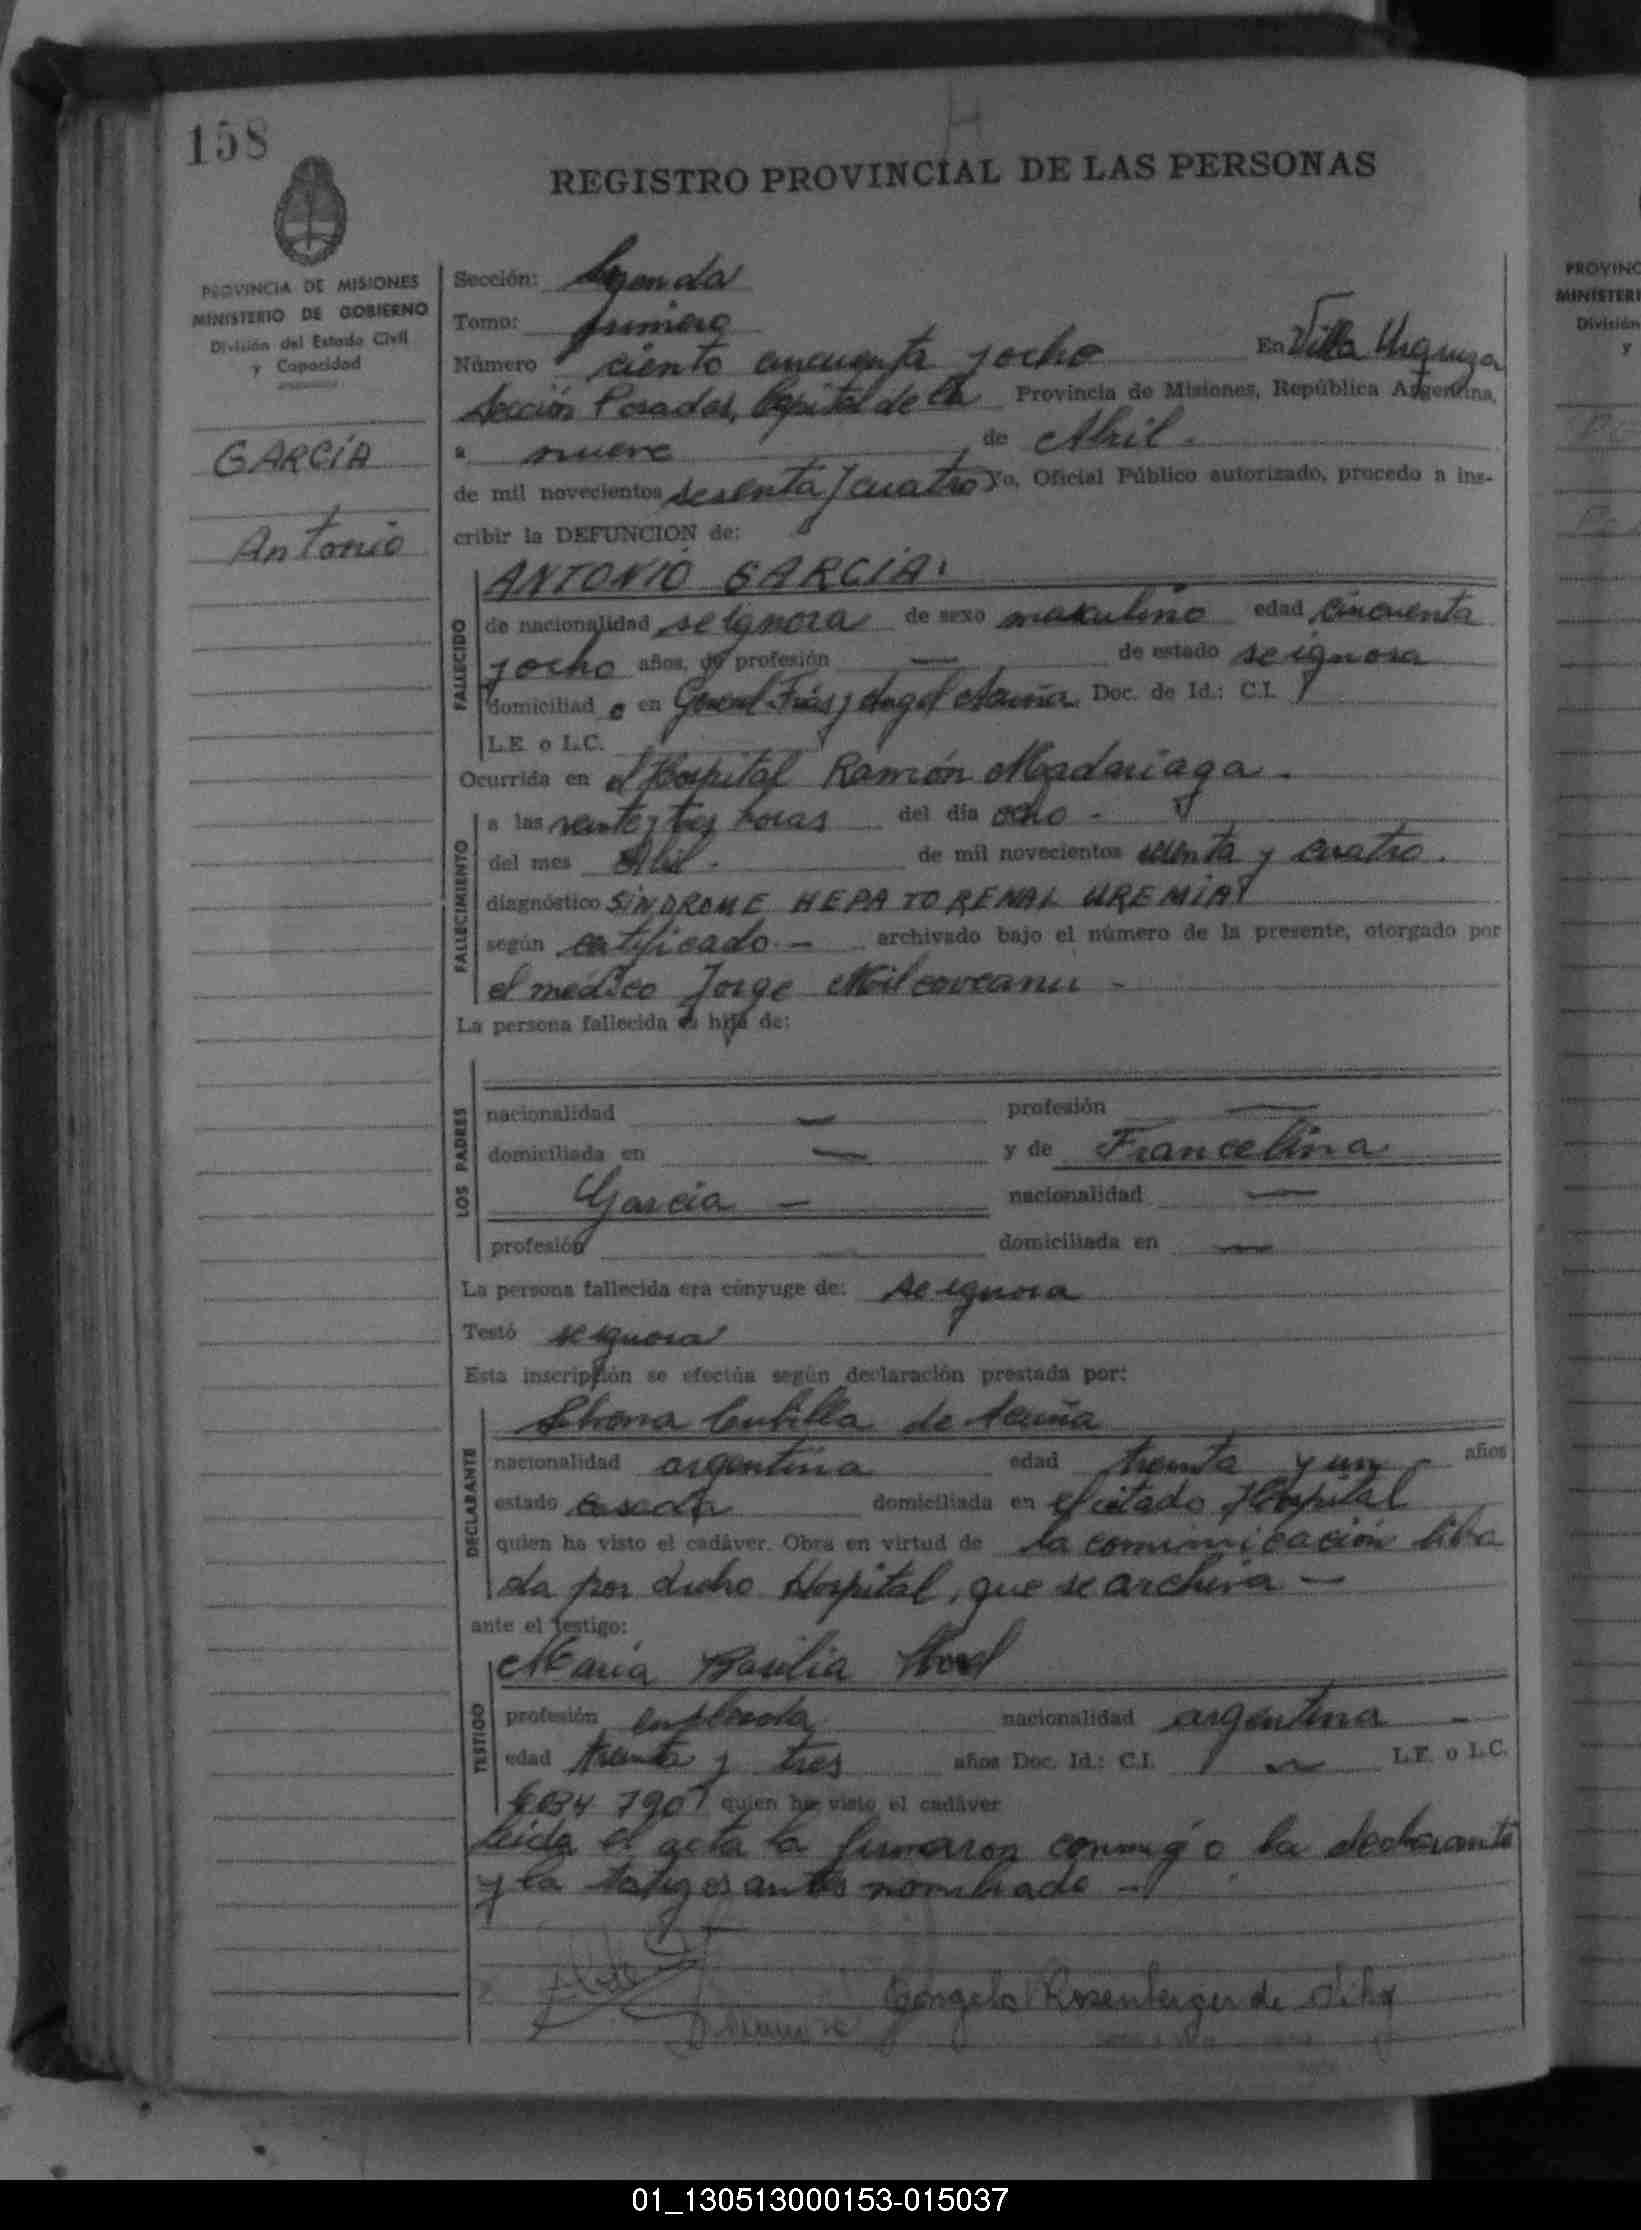 158
REGISTRO PROVINCIAL DE LAS PERSONAS
PROVINCIA DE MISIONES
MINISTERIO DE GOBIERNO
División del Estado Civil
y Capacidad
GARCÍA
Antonio
Sección: Segunda
Tomo: primero
Número ciento cincuenta y ocho En Villa Urquiza
Sección Posadas, Capital de la Provincia de Misiones, República Argentina,
a nueve de Abril.
de mil novecientos sesenta y cuatro Yo, Oficial Público autorizado, procedo a ins-
cribir la DEFUNCION de:
FALLECIDO
ANTONIO GARCÍA.
de nacionalidad se ignora de sexo masculino edad cincuenta
y ocho años, de profesión — de estado se ignora
domiciliad o en General Frías y Angel Acuña Doc. de Id.: C.I.
L.E. o L.C.
Ocurrida en el Hospital Ramón Madariaga.
FALLECIMIENTO
a las veinte y tres horas del día ocho -
del mes Abril. de mil novecientos sesenta y cuatro.
diagnóstico SÍNDROME HEPATORENAL UREMIA
según certificado. — archivado bajo el número de la presente, otorgado por
el médico Jorge Milcoveanu -
La persona fallecida es hija de:
LOS PADRES
nacionalidad — profesión —
domiciliada en — y de Francelina
García — nacionalidad —
profesión — domiciliada en —
La persona fallecida era cónyuge de: se ignora
Testó se ignora
Esta inscripción se efectúa según declaración prestada por:
DECLARANTE
Cubilla de Acuña
nacionalidad argentina edad treinta y un años
estado casada domiciliada en el citado Hospital
quien ha visto el cadáver. Obra en virtud de la comunicación libra
da por dicho Hospital, que se archiva —
ante el testigo:
TESTIGO
María Basilia
profesión empleada nacionalidad argentina —
edad treinta y tres años Doc. Id.: C.I. L.E. o L.C.
790 quien ha visto el cadáver
Leida el acta la firmaron conmigo la declarante
y la testigos antes nombrado —
Rosenberger de
PROVINC
MINISTERI
División
y
01_130513000153-015037